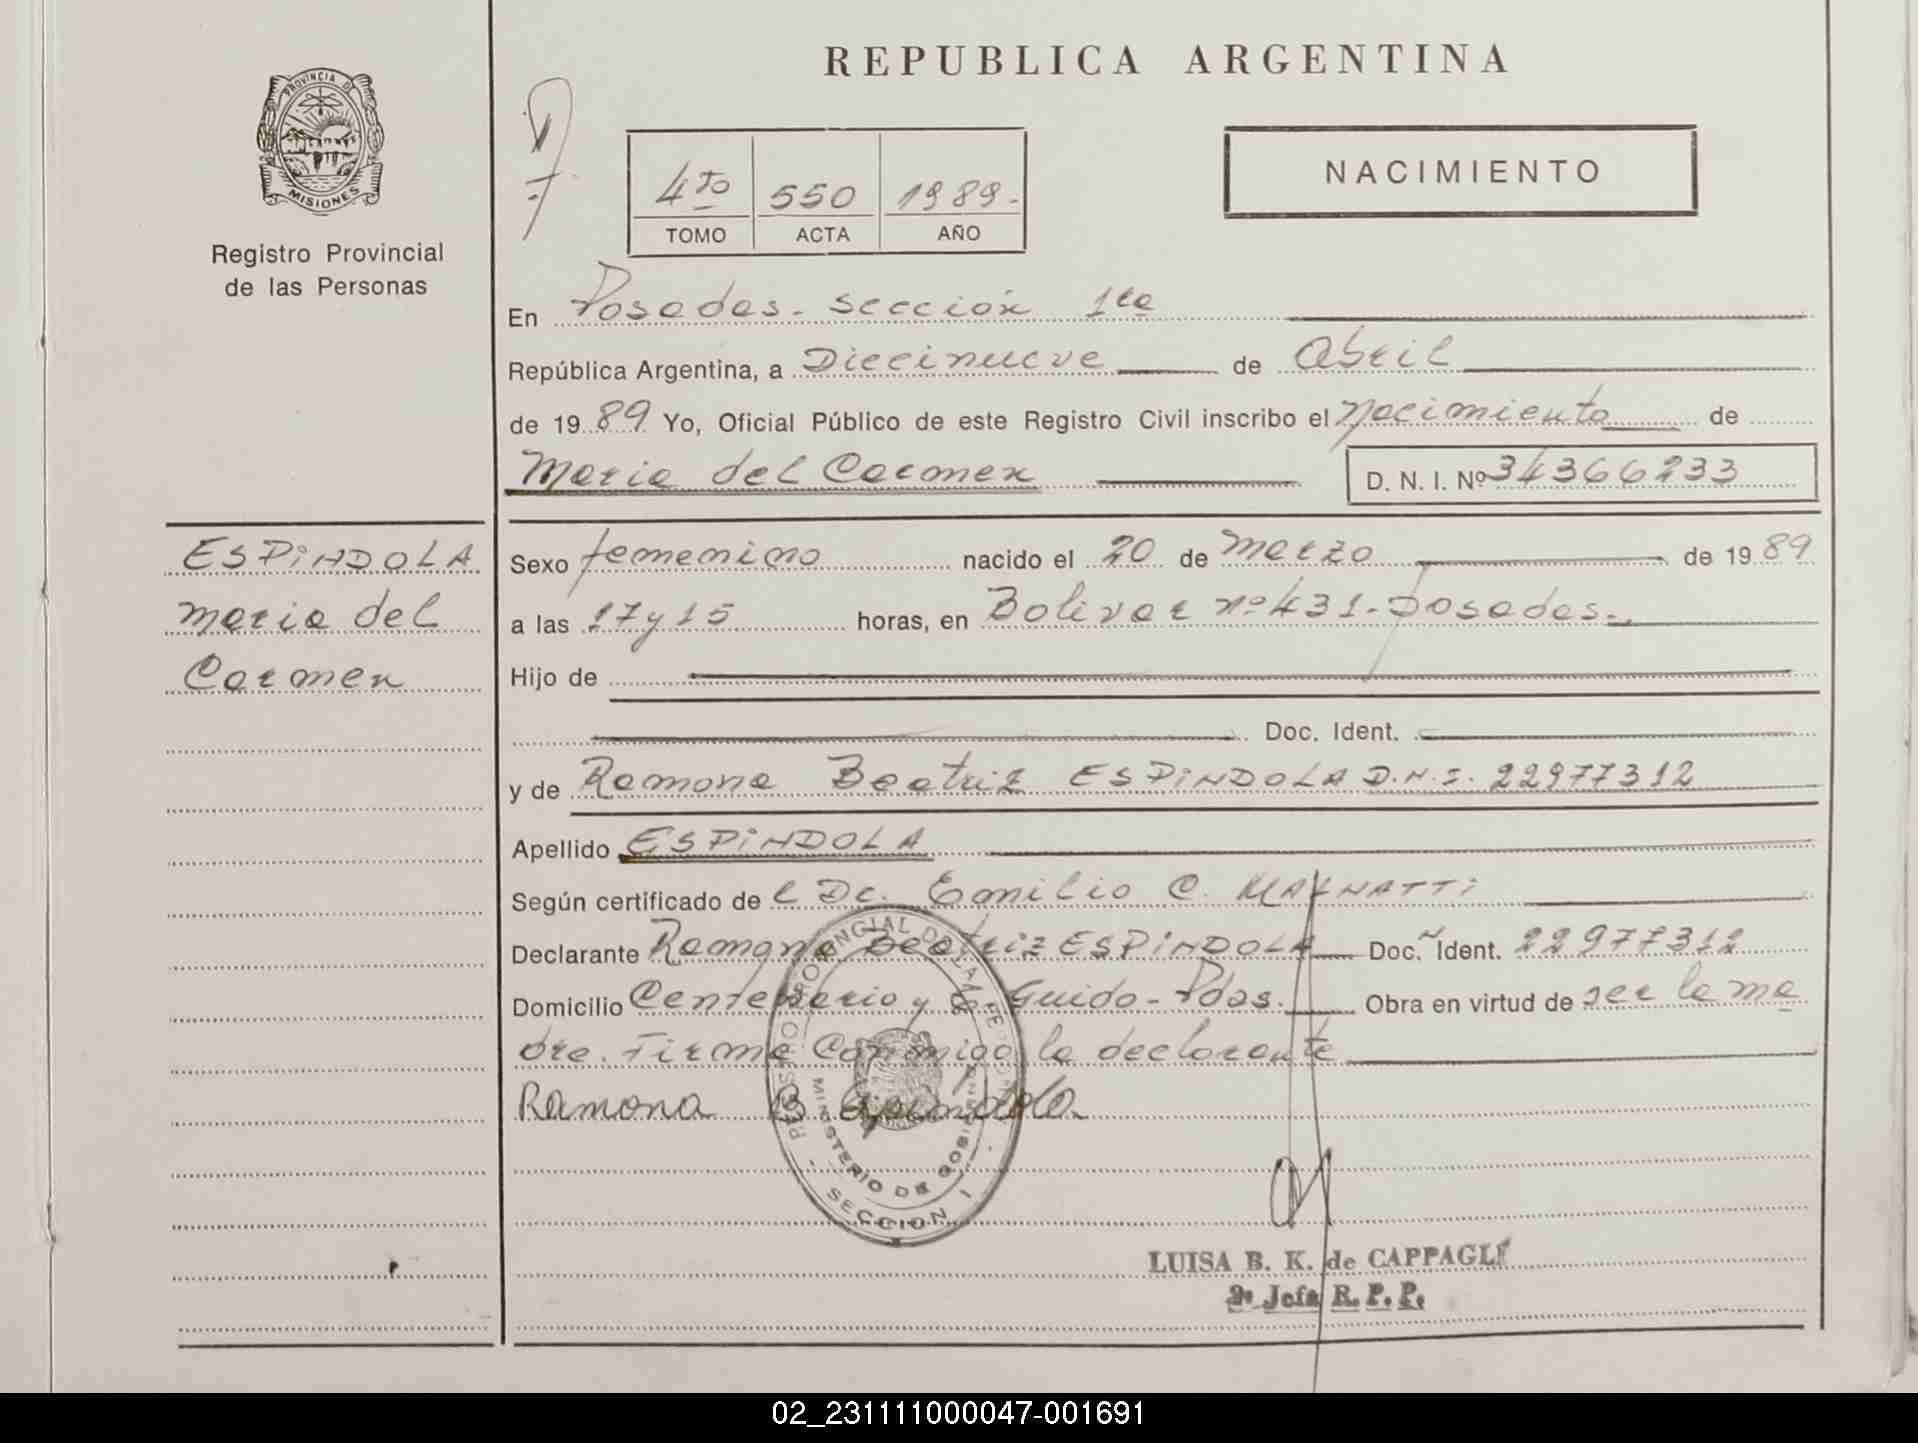 REPUBLICA ARGENTINA
PROVINCIA D
MISIONES
Registro Provincial
de las Personas
4to 550 1989.
TOMO ACTA AÑO
NACIMIENTO
En Posadas. Sección 1ra
República Argentina, a Diecinueve de Abril
de 1989 Yo, Oficial Público de este Registro Civil inscribo el Nacimiento de
Maria del Carmen D. N. I. Nº 34366233
ESPiNDOLA
Maria del
Carmen
Sexo femenino nacido el 20 de Marzo de 1989
a las 17 y 15 horas, en Bolivar nº 431-Posadas.
Hijo de
Doc. Ident.
y de Ramona Beatriz ESPiNDOLA D.N.I. 22977312
Apellido ESPiNDOLA
Según certificado de l Dr. Emilio C.
Declarante Ramona Beatriz ESPiNDOLA Doc. Ident. 22977312
Domicilio Centenario y Guido-Pdas. Obra en virtud de ser la ma
dre. Firma Conmigo la declarante
Ramona B. Espindola
REGISTRO PROVINCIAL DE LAS PERSONAS
MINISTERIO DE GOBIERNO
SECCION I
LUISA B. K. de CAPPAGLI
2ª Jefa R. P. P.
02_231111000047-001691